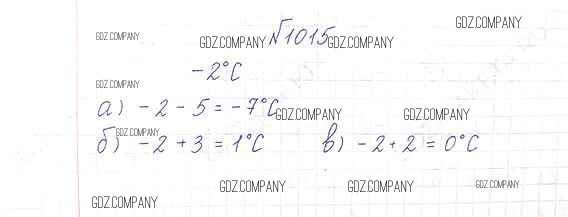 GDZ.COMPANY
GDZ.COMPANY GDZ.COMPANY №1015 GDZ.COMPANY
-2°C
GDZ.COMPANY
а) -2-5=-7°C GDZ.COMPANY GDZ.COMPANY
GDZ.COMPANY
б) -2+3=1°C в) -2+2=0°C
GDZ.COMPANY GDZ.COMPANY GDZ.COMPANY
GDZ.COMPANY